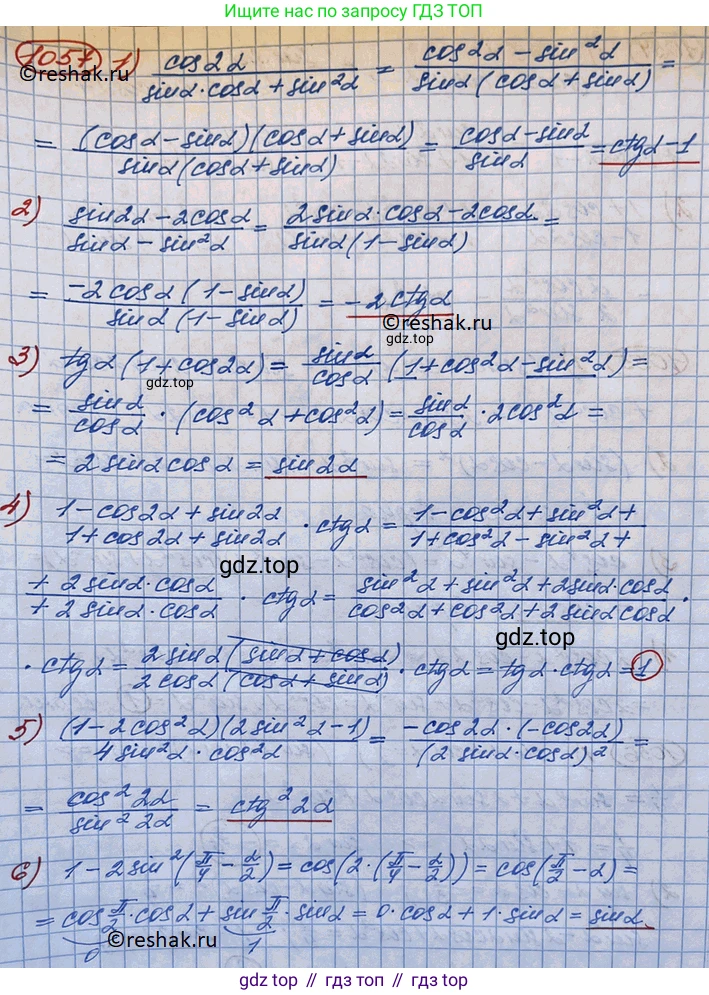 Ищите нас по запросу ГДЗ ТОП
1057 1) cos2α / (sinα·cosα + sin²α) = (cos²α − sin²α) / (sinα(cosα + sinα)) =
©reshak.ru
= (cosα − sinα)(cosα + sinα) / (sinα(cosα + sinα)) = (cosα − sinα) / sinα = ctgα − 1
2) (sin2α − 2cosα) / (sinα − sin²α) = (2sinα·cosα − 2cosα) / (sinα(1 − sinα)) =
= −2cosα(1 − sinα) / (sinα(1 − sinα)) = −2ctgα
©reshak.ru
3) tgα(1 + cos2α) = sinα/cosα (1 + cos²α − sin²α) =
gdz.top gdz.top
= sinα/cosα · (cos²α + cos²α) = sinα/cosα · 2cos²α =
= 2sinαcosα = sin2α
4) (1 − cos2α + sin2α) / (1 + cos2α + sin2α) · ctgα = (1 − cos²α + sin²α + / 1 + cos²α − sin²α +
gdz.top
+ 2sinα·cosα / + 2sinα·cosα) · ctgα = (sin²α + sin²α + 2sinα·cosα) / (cos²α + cos²α + 2sinαcosα) ·
gdz.top
· ctgα = 2sinα(sinα + cosα) / (2cosα(cosα + sinα)) · ctgα = tgα·ctgα = 1
5) (1 − 2cos²α)(2sin²α − 1) / (4sin²α·cos²α) = −cos2α·(−cos2α) / (2sinα·cosα)² =
= cos²2α / sin²2α = ctg²2α
6) 1 − 2sin²(π/4 − α/2) = cos(2·(π/4 − α/2)) = cos(π/2 − α) =
= cos π/2 · cosα + sin π/2 · sinα = 0·cosα + 1·sinα = sinα.
0 1
©reshak.ru
gdz top // гдз топ // gdz.top